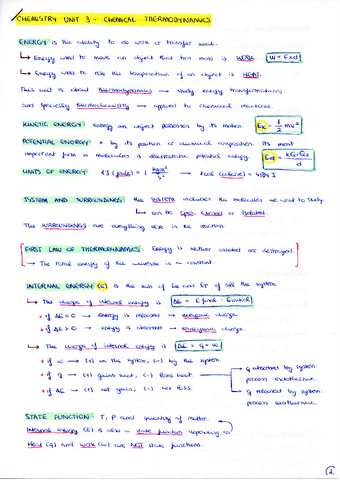 CHEMISTRY UNIT 3 - CHEMICAL THERMODYNAMICS
ENERGY is the ability to do work or transfer heat.
↳ Energy used to move an object that has mass is WORK. W = F x d
↳ Energy used to rise the temperature of an object is HEAT.
This unit is about thermodynamics → study energy transformations,
and specially thermochemistry → applied to chemical reactions.
KINETIC ENERGY: energy an object possesses by its motion. Ek = 1/2 mv²
POTENTIAL ENERGY: by its position or chemical composition. Its most
important form in molecules is electrostatic potential energy. Eel = kQ1Q2/d
UNITS OF ENERGY: 1 J (joule) = 1 kg m²/s² → 1 cal (calorie) = 4.184 J
SYSTEM AND SURROUNDINGS: the system includes the molecules we want to study.
↳ can be open, closed or isolated.
The surroundings are everything else in the reaction.
FIRST LAW OF THERMODYNAMICS: Energy is neither created nor destroyed.
→ The total energy of the universe is a constant.
INTERNAL ENERGY (E) is the sum of Ek and Ep of all the system.
↳ The change of internal energy is ΔE = E final - E initial
* if ΔE < 0 → energy is released → exergonic change.
* if ΔE > 0 → energy is absorbed → endergonic change.
↳ The change of internal energy is ΔE = q + w
* if w → (+) in the system; (-) by the system.
* if q → (+) gains heat; (-) loses heat.
* if ΔE → (+) net gain; (-) net loss.
q absorbed by system:
process endothermic.
q released by system:
process exothermic.
STATE FUNCTION: T, P and quantity of matter.
Internal energy (E) is also a state function depending on
Heat (q) and work (w) are NOT state functions.
1